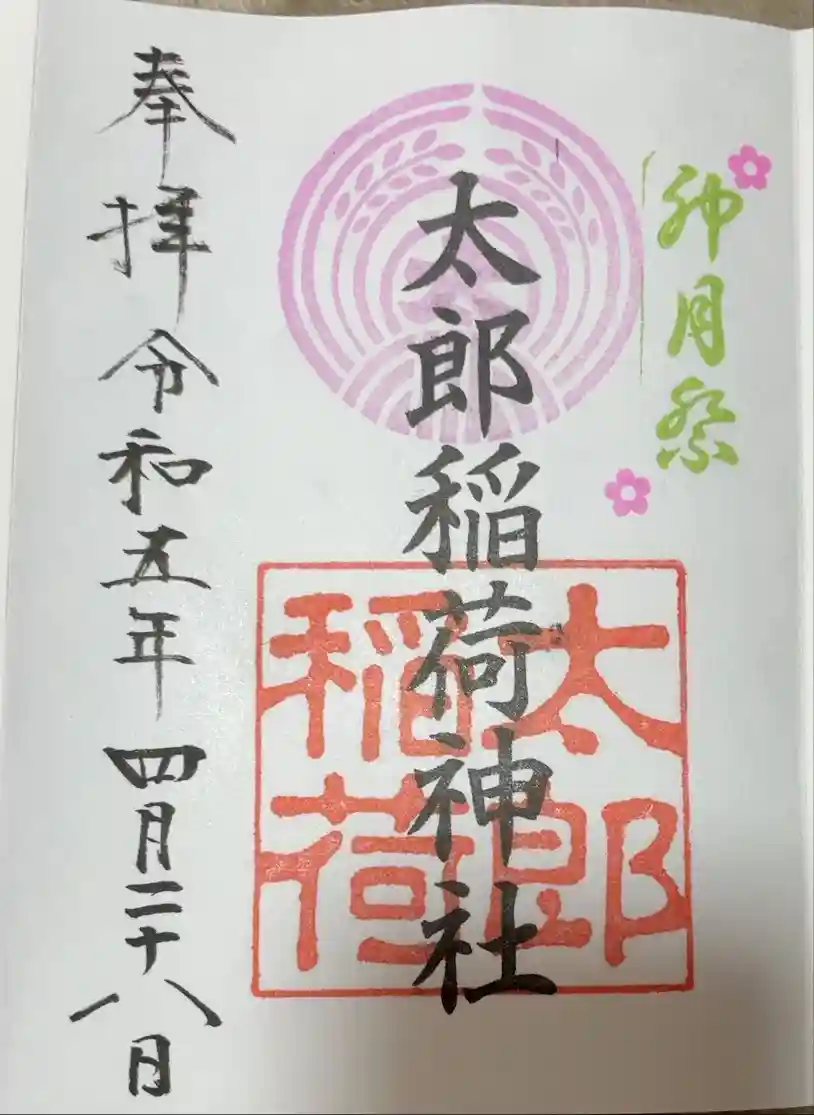 卯月祭
太郎稲荷神社
太郎
稲荷
奉拝 令和五年 四月二十八日